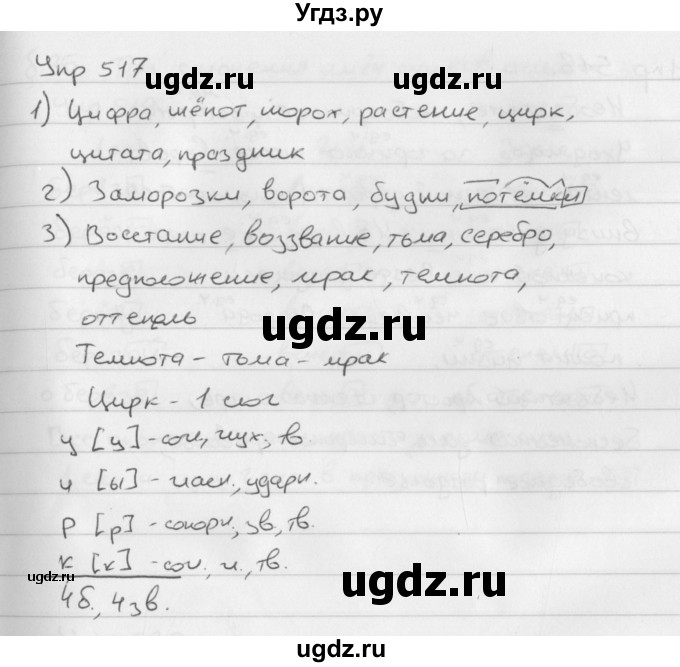 Угдз.ру
Упр 517
1) Цифра, шёпот, шорох, растение, цирк,
цитата, праздник
2) Заморозки, ворота, будни, потёмки
3) Восстание, воззвание, тьма, серебро,
предположение, мрак, темнота,
оттепель
Темнота - тьма - мрак
Цирк - 1 слог
ц [ц] - согл, глух, тв
и [ы] - гласн., ударн.
р [р] - сонорн, зв, тв.
к [к] - согл, гл., тв.
4б., 4зв.
ugdz.ru
ugdz.ru
ugdz.ru
ugdz.ru
ugdz.ru
ugdz.ru
ugdz.ru
ugdz.ru
Угдз.ру